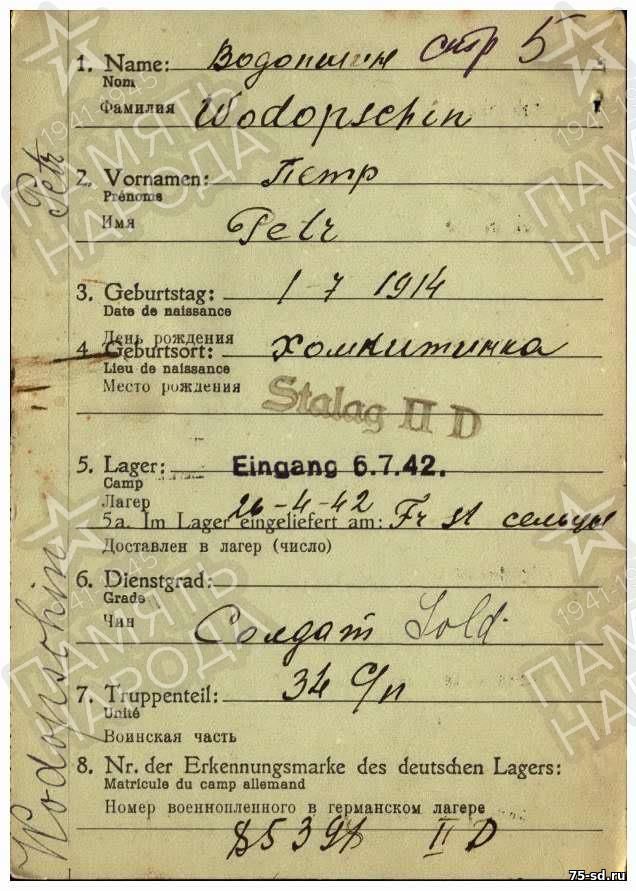 1. Name: Водопшин стр 5
Nom
Фамилия Wodopschin
2. Vornamen: Петр
Prénoms
Имя Petr
3. Geburtstag: 1-7 1914
Date de naissance
День рождения
4. Geburtsort: Хомкитинка
Lieu de naissance
Место рождения
Stalag II D
5. Lager: Eingang 6.7.42.
Camp
Лагерь 26-4-42
5a. Im Lager eingeliefert am: Fr St сельцы
Доставлен в лагер (число)
6. Dienstgrad:
Grade
Чин Солдат Sold.
7. Truppenteil: 34 с/п
Unité
Воинская часть
8. Nr. der Erkennungsmarke des deutschen Lagers:
Matricule du camp allemand
Номер военнопленного в германском лагере
85398 II D
Wodopschin Petr
ПАМЯТЬ НАРОДА
1941-1945
75-sd.ru